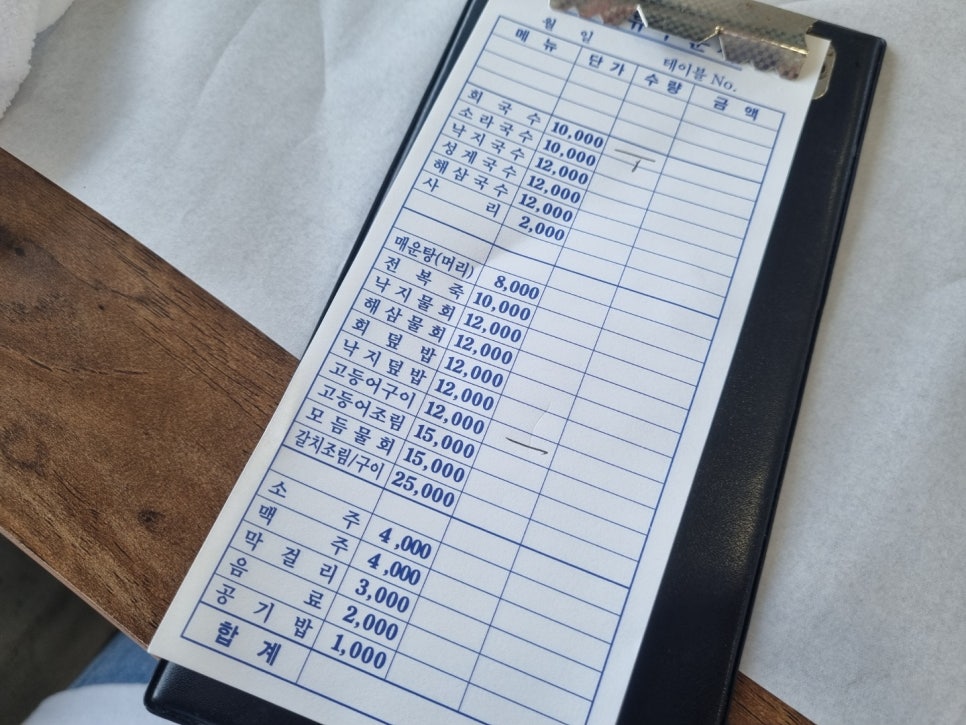 월 일 테이블 No.
메 뉴 단 가 수 량 금 액
회 국 수 10,000
소 라 국 수 10,000
낙 지 국 수 12,000
성 게 국 수 12,000
해 삼 국 수 12,000
사 리 2,000
매운탕(머리) 8,000
전 복 죽 10,000
낙 지 물 회 12,000
해 삼 물 회 12,000
회 덮 밥 12,000
낙 지 덮 밥 12,000
고등어구이 12,000
고등어조림 15,000
모 듬 물 회 15,000
갈치조림/구이 25,000
소 주 4,000
맥 주 4,000
막 걸 리 3,000
음 료 2,000
공 기 밥 1,000
합 계